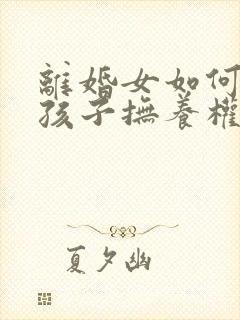 離婚女如何
孩子撫養權
夏夕幽